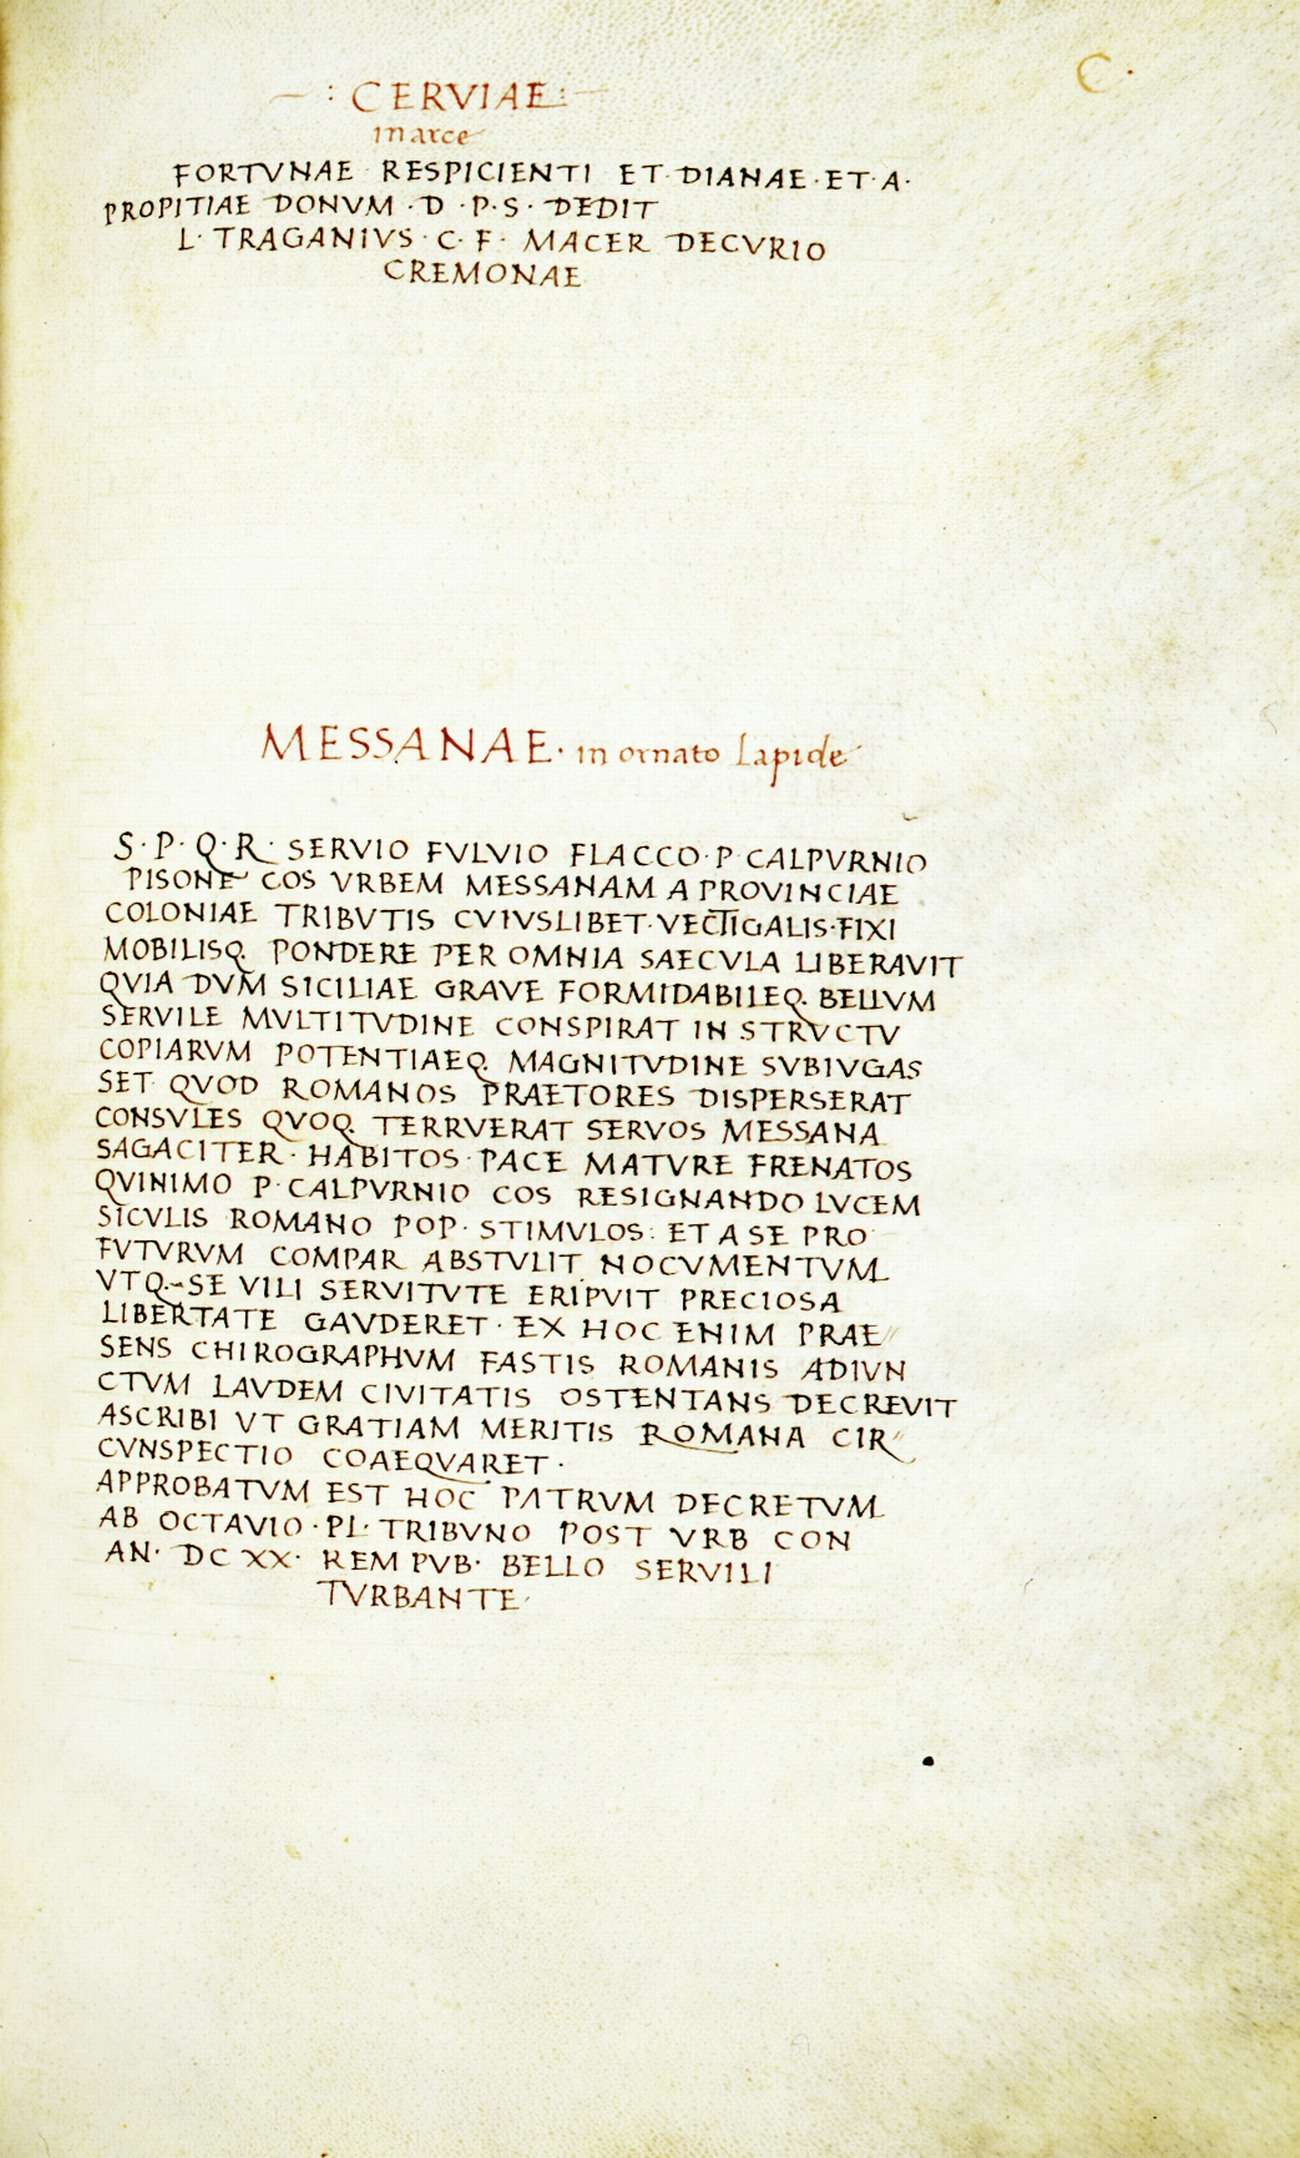 C·
: CERVIAE :
in arce
FORTVNAE RESPICIENTI ET DIANAE · ET · A ·
PROPITIAE DONVM · D · P · S · DEDIT
L · TRAGANIVS · C · F · MACER DECVRIO
CREMONAE
MESSANAE · in ornato lapide
S · P · Q · R · SERVIO FVLVIO FLACCO · P · CALPVRNIO
PISONE COS VRBEM MESSANAM A PROVINCIAE
COLONIAE TRIBVTIS CVIVSLIBET · VECTIGALIS · FIXI
MOBILISQ. PONDERE PER OMNIA SAECVLA LIBERAVIT
QVIA DVM SICILIAE GRAVE FORMIDABILEQ. BELLVM
SERVILE MVLTITVDINE CONSPIRAT IN STRVCTV
COPIARVM POTENTIAEQ. MAGNITVDINE SVBIVGAS
SET QVOD ROMANOS PRAETORES DISPERSERAT
CONSVLES QVOQ. TERRVERAT SERVOS MESSANA
SAGACITER · HABITOS · PACE MATVRE FRENATOS
QVINIMO P · CALPVRNIO COS RESIGNANDO LVCEM
SICVLIS ROMANO POP · STIMVLOS : ET A SE PRO
FVTVRVM COMPAR ABSTVLIT NOCVMENTVM
VTQ.-SE VILI SERVITVTE ERIPVIT PRECIOSA
LIBERTATE GAVDERET · EX HOC ENIM PRAE//
SENS CHIROGRAPHVM FASTIS ROMANIS ADIVN
CTVM LAVDEM CIVITATIS OSTENTANS DECREVIT
ASCRIBI VT GRATIAM MERITIS ROMANA CIR//
CVNSPECTIO COAEQVARET ·
APPROBATVM EST HOC PATRVM DECRETVM
AB OCTAVIO · PL · TRIBVNO POST VRB CON
AN · DC XX · REM PVB · BELLO SERVILI
TVRBANTE ·